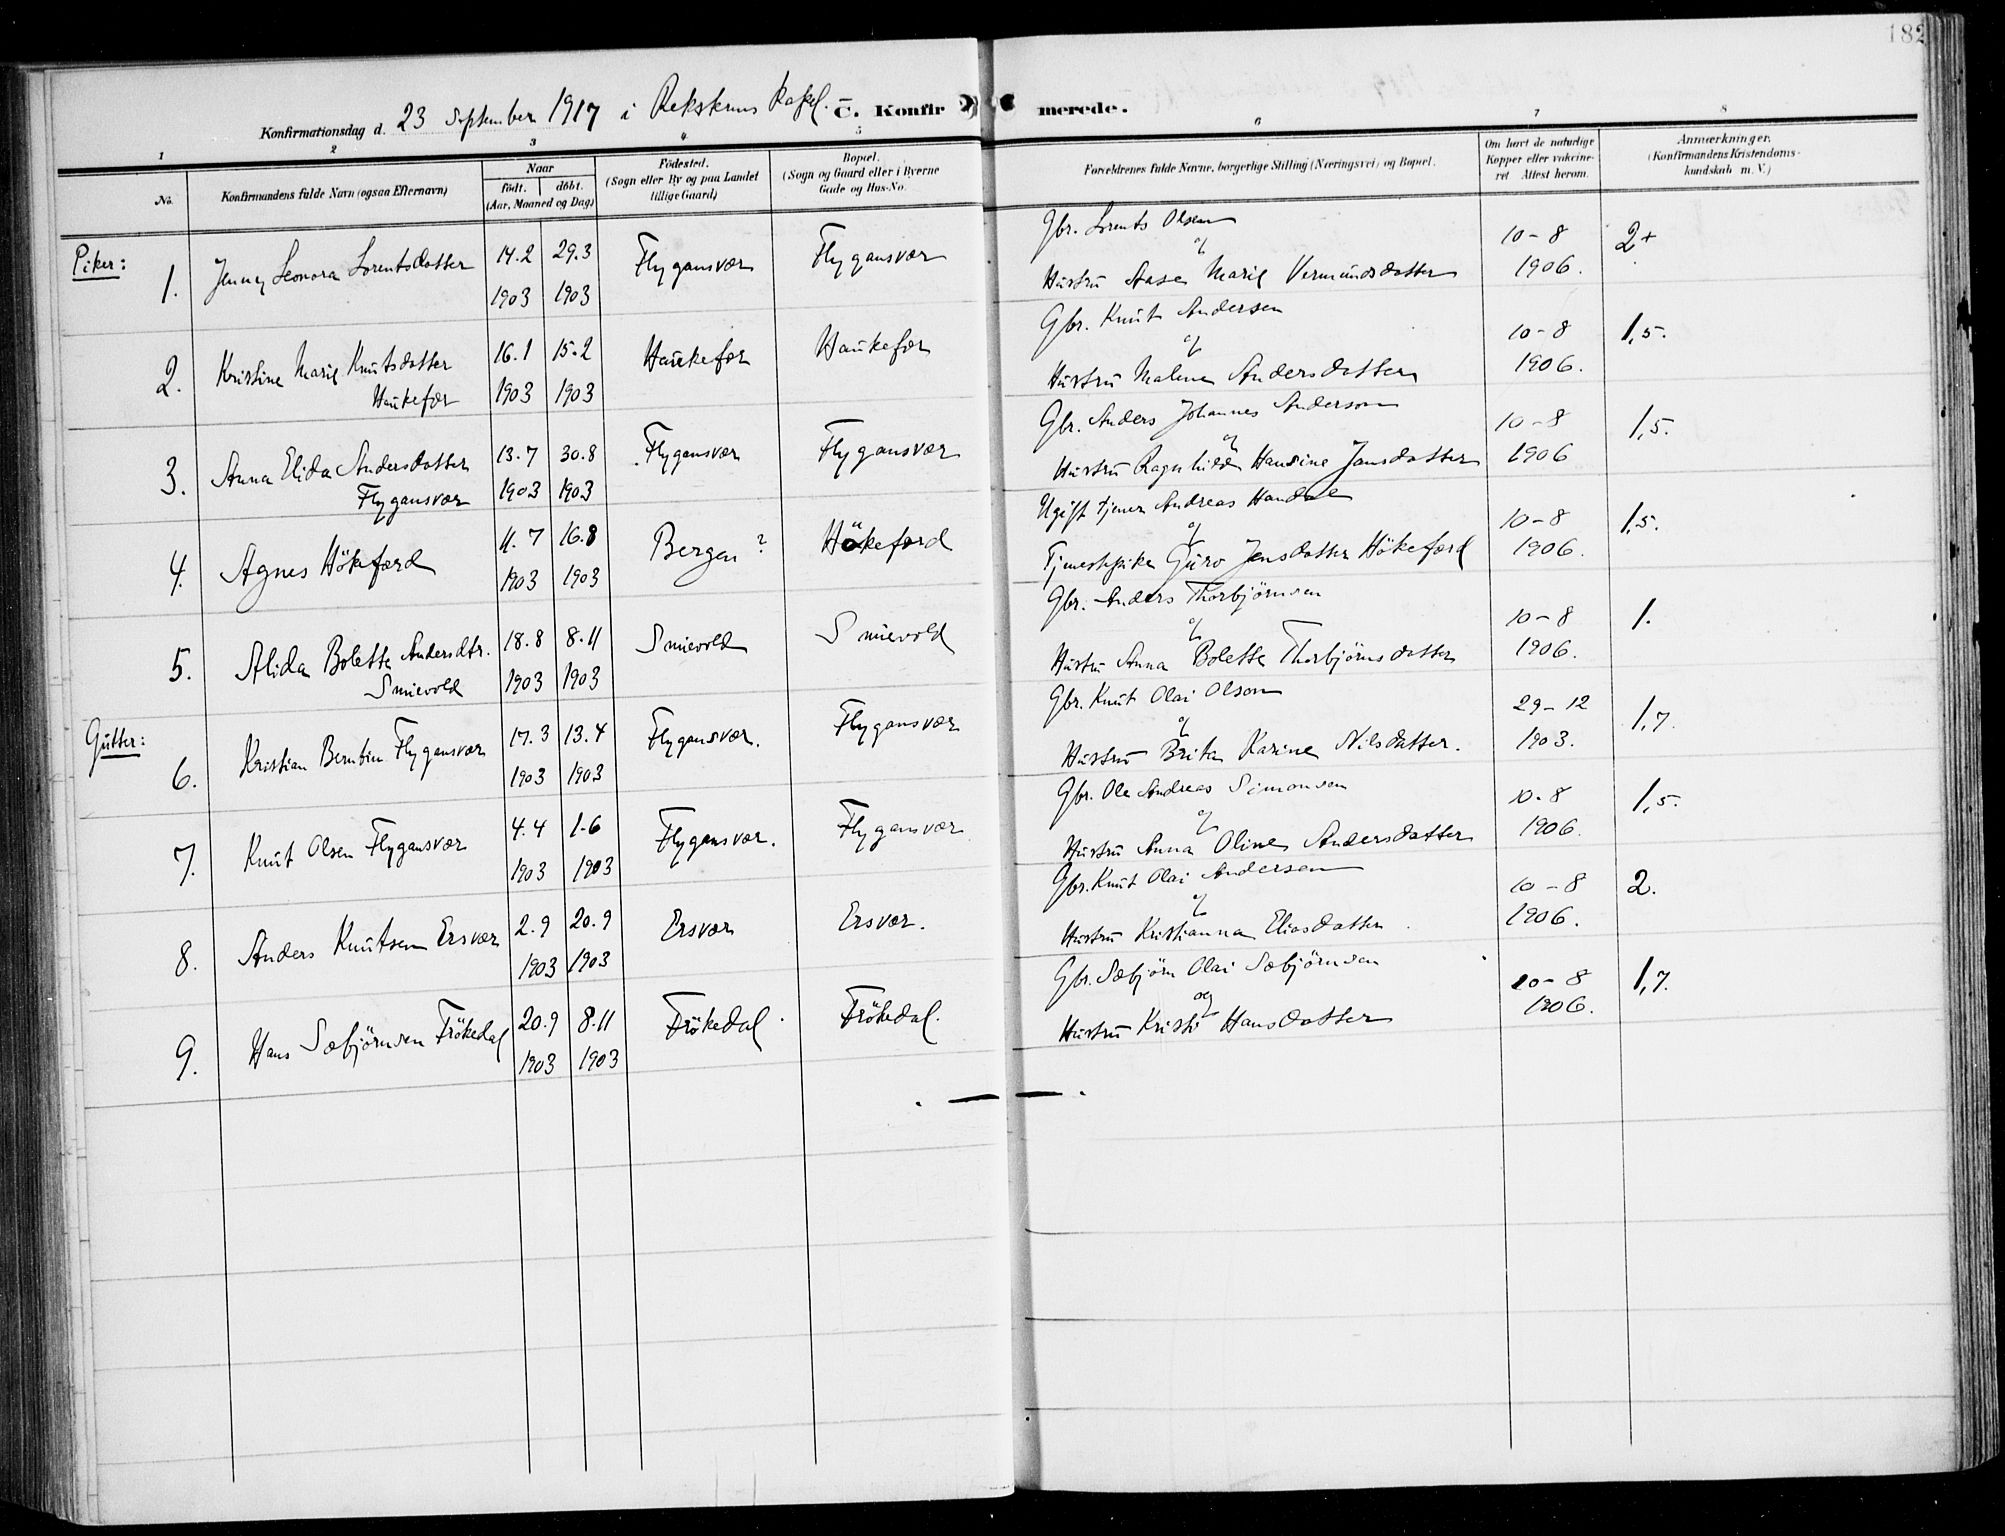 182
Konfirmationsdag d. 23 September 1917 i Reksterens Kapel. C. Konfirmerede.
1 2 3 4 5 6 7 8
No.
Konfirmandens fulde Navn (ogsaa Efternavn)
Naar
födt. döbt.
(Aar, Maaned og Dag)
Födested.
(Sogn eller By og paa Landet
tillige Gaard)
Bopæl.
(Sogn og Gaard eller i Byerne
Gade og Hus-No.
Forældrenes fulde Navne, borgerlige Stilling (Næringsvei) og Bopæl.
Om havt de naturlige
Kopper eller vakcine-
ret Attest herom.
Anmærkninger.
(Konfirmandens Kristendoms-
kundskab m. V.)
Piker:
1. Jenny Leonora Lorentsdatter 14.2 1903 29.3 1903 Flygansvær Flygansvær
Gbr. Lorents Olsen
og
Hustru Aase Marie Vermundsdatter 10-8 1906. 2+
2. Kristine Marie Knutsdatter
Haukefær 16.1 1903 15.2 1903 Haukefær Haukefær
Gbr. Knut Andersen
og
Hustru Malene Andersdatter 10-8 1906. 1,5.
3. Anna Elida Andersdatter
Flygansvær 13.7 1903 30.8 1903 Flygansvær Flygansvær
Gbr. Anders Johannes Anderson
og
Hustru Ragnhilda Hansine Jansdatter 10-8 1906 1,5.
4. Agnes Hökefærd 11.7 1903 16.8 1903 Bergen? Hökeford
Ugift tjener Andreas
og
Tjenestepike Guro Jensdatter Hökefærd 10-8 1906. 1,5.
5. Alida Bolette Andersdtr.
Smievold 18.8 1903 8.11 1903 Smievold Smievold
Gbr. Anders Thorbjörnsen
og
Hustru Anna Bolette Thorbjörnsdatter 10-8 1906. 1.
Gutter:
6. Kristian Berntin Flygansvær 17.3 1903 13.4 1903 Flygansvær. Flygansvær
Gbr. Knut Olai Olson
og
Hustru Brita Karine Nilsdatter. 29-12 1903. 1,7.
7. Knut Olsen Flygansvær 4.4 1903 1-6 1903 Flygansvær. Flygansvær
Gbr. Ole Andreas Simonsen
og
Hustru Anna Oline Andersdatter 10-8 1906. 1,5.
8. Anders Knutsen Ersvær 2.9 1903 20.9 1903 Ersvær Ersvær.
Gbr. Knut Olai Andersen
og
Hustru Kristianna Eliasdatter 10-8 1906. 2.
9. Hans Sæbjörnsen Frökedal 20.9 1903 8.11 1903 Frökedal Frökedal.
Gbr. Sæbjörn Olai Sæbjörnsen
og
Hustru Kristi Hansdatter 10-8 1906. 1,7.